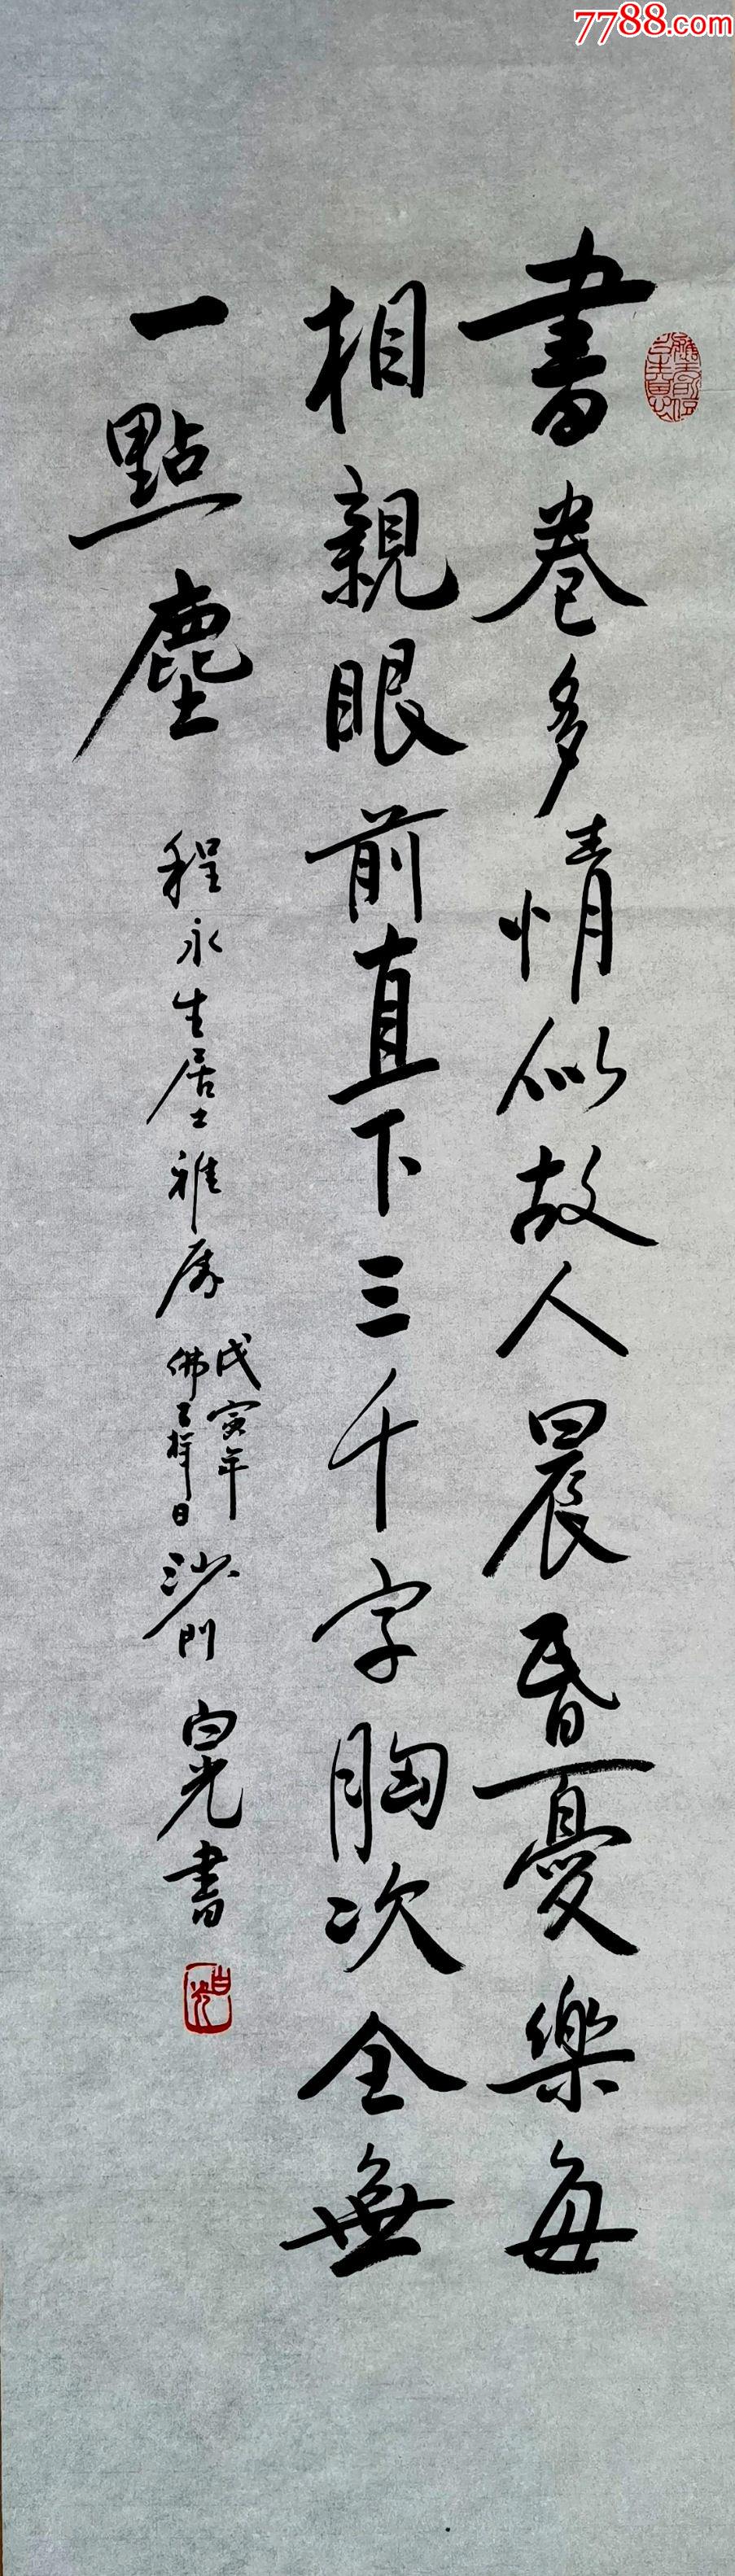 7788.com
書卷多情似故人晨昏憂樂每
相親眼前直下三千字胸次全無
一點塵
程永生居士雅屬
戊寅年
佛
日
沙門
白光書
白光